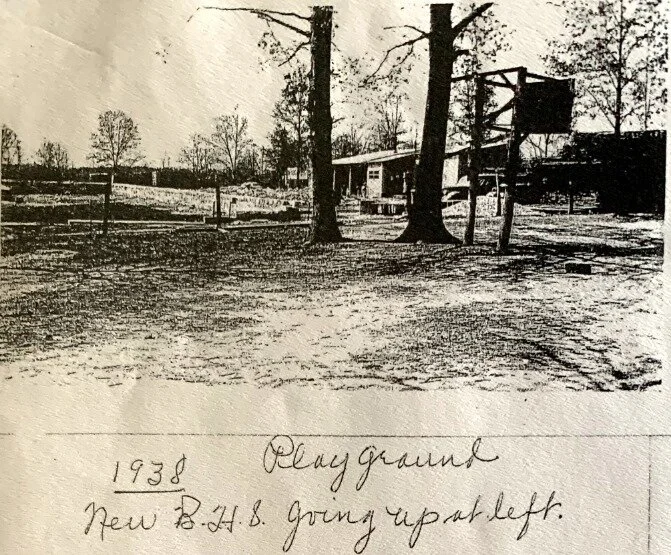 Playground
1938
New B.H.S. going up at left.